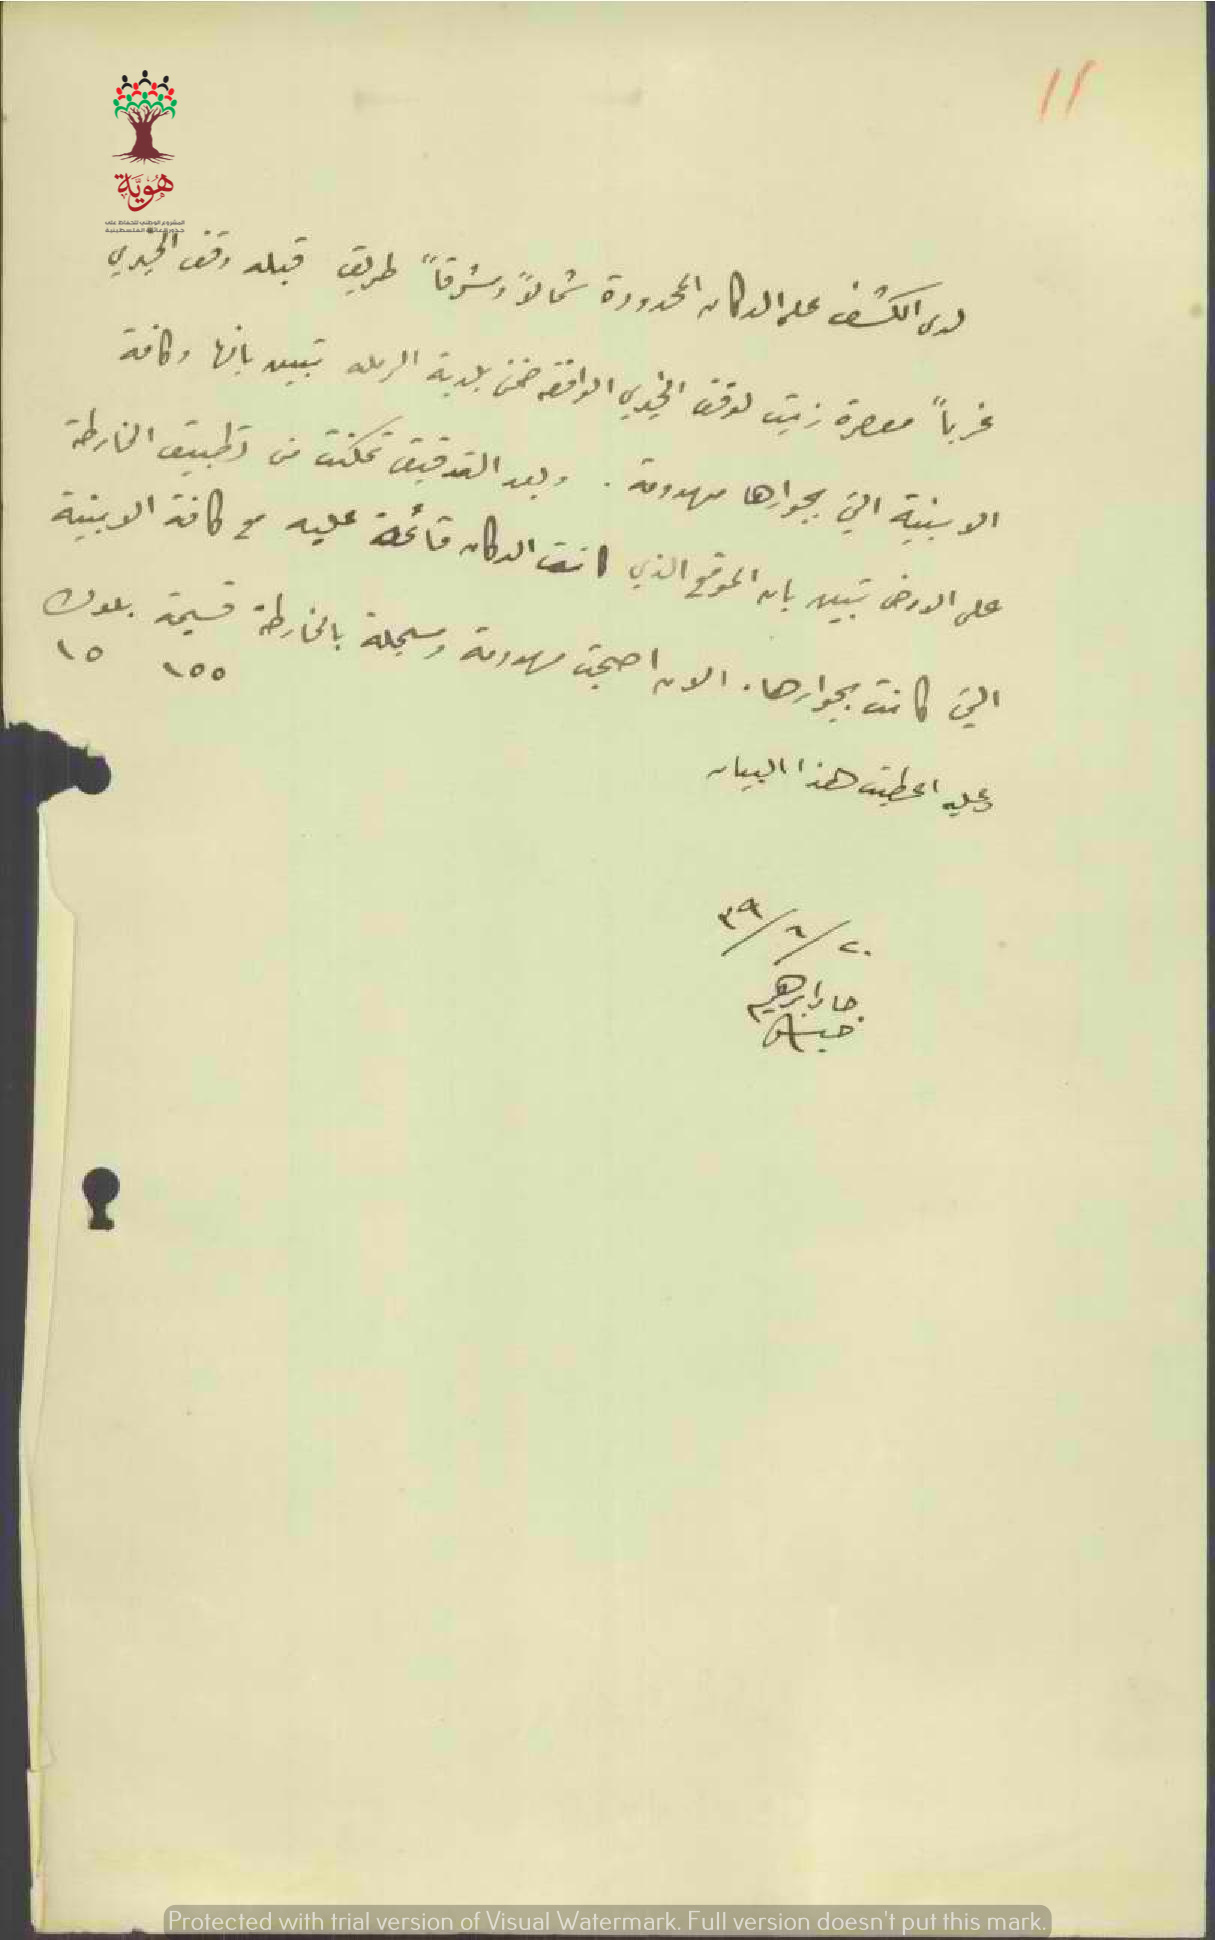 ١٢
هوية
المشروع الوطني للحفاظ على
جذور العائلة الفلسطينية
لدى الكشف على الدكان المحدودة شمالاً وشرقاً طريق قبله وقف الخيري
غرباً معصرة زيت لوقف الخيري الواقعه ضمن بلدية الرمله تبين بانها وكافة
الابنية التي بجوارها مهدومة . وبعد التدقيق تمكنت من تطبيق الخارطة
على الارض تبين بان الموقع الذي كانت الدكان قائمة عليه مع كافة الابنية
التي كانت بجوارها . الان اصبحت مهدومة ومسجلة بالخارطة قسيمة بلوك
١٥٥ ١٥
وعليه اعطيت هذا البيان
٢٠/٨/٣٩
ابراهيم
Protected with trial version of Visual Watermark. Full version doesn't put this mark.